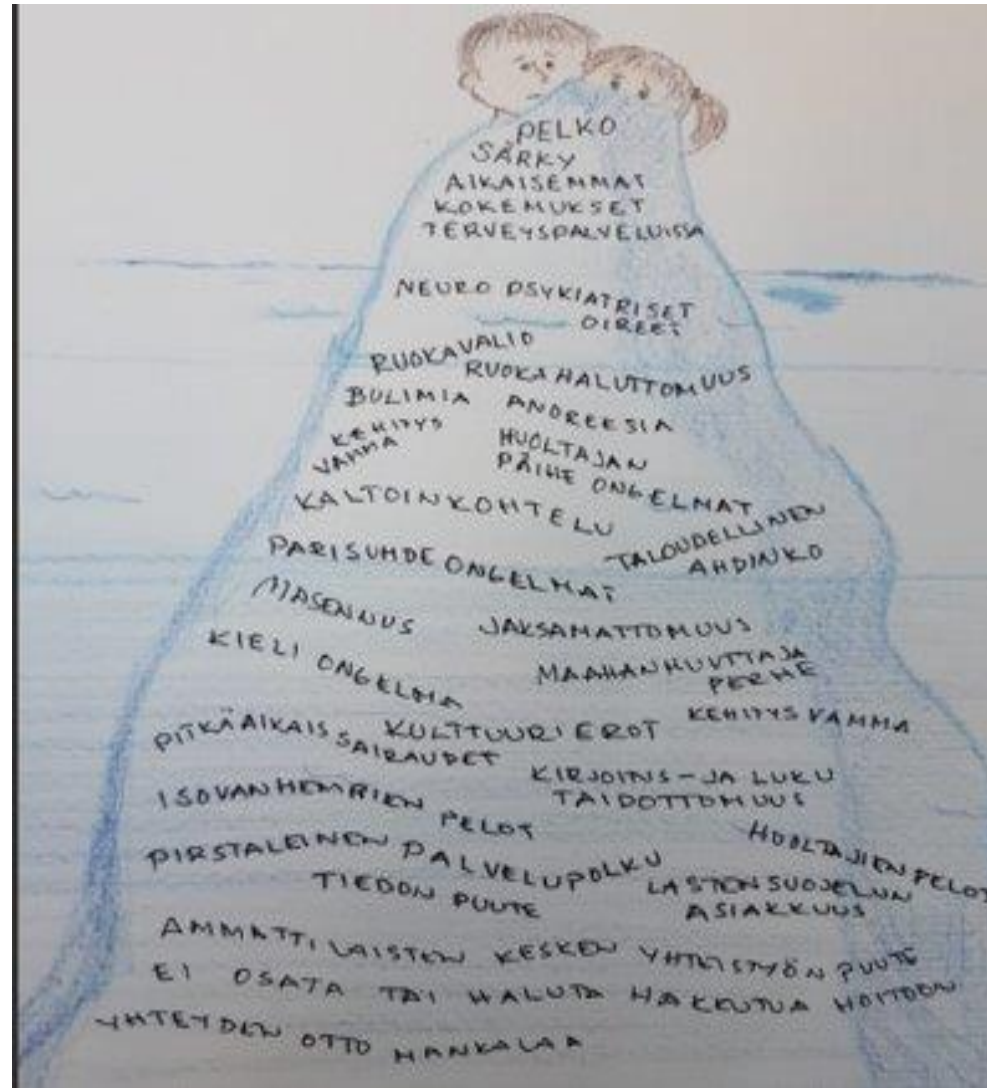 PELKO
SÄRKY
AIKAISEMMAT
KOKEMUKSET
TERVEYSPALVELUISSA
NEURO PSYKIATRISET
OIREET
RUOKAVALIO
RUOKAHALUTTOMUUS
BULIMIA ANOREESIA
KEHITYS
VAMMA
HUOLTAJAN
PÄIHE ONGELMAT
KALTOINKOHTELU
TALOUDELLINEN
AHDINKO
PARISUHDE ONGELMAT
MASENNUS JAKSAMATTOMUUS
KIELI ONGELMA
MAAHANMUUTTAJA
PERHE
PITKÄAIKAIS SAIRAUDET
KULTTUURI EROT
KEHITYS VAMMA
KIRJOITUS-JA LUKU
TAIDOTTOMUUS
ISOVANHEMPIEN
PELOT
HUOLTAJIEN PELOT
PIRSTALEINEN PALVELUPOLKU
TIEDON PUUTE
LASTENSUOJELUN
ASIAKKUUS
AMMATTILAISTEN KESKEN YHTEISTYÖN PUUTE
EI OSATA TAI HALUTA HAKEUTUA HOITOON
YHTEYDEN OTTO HANKALAA